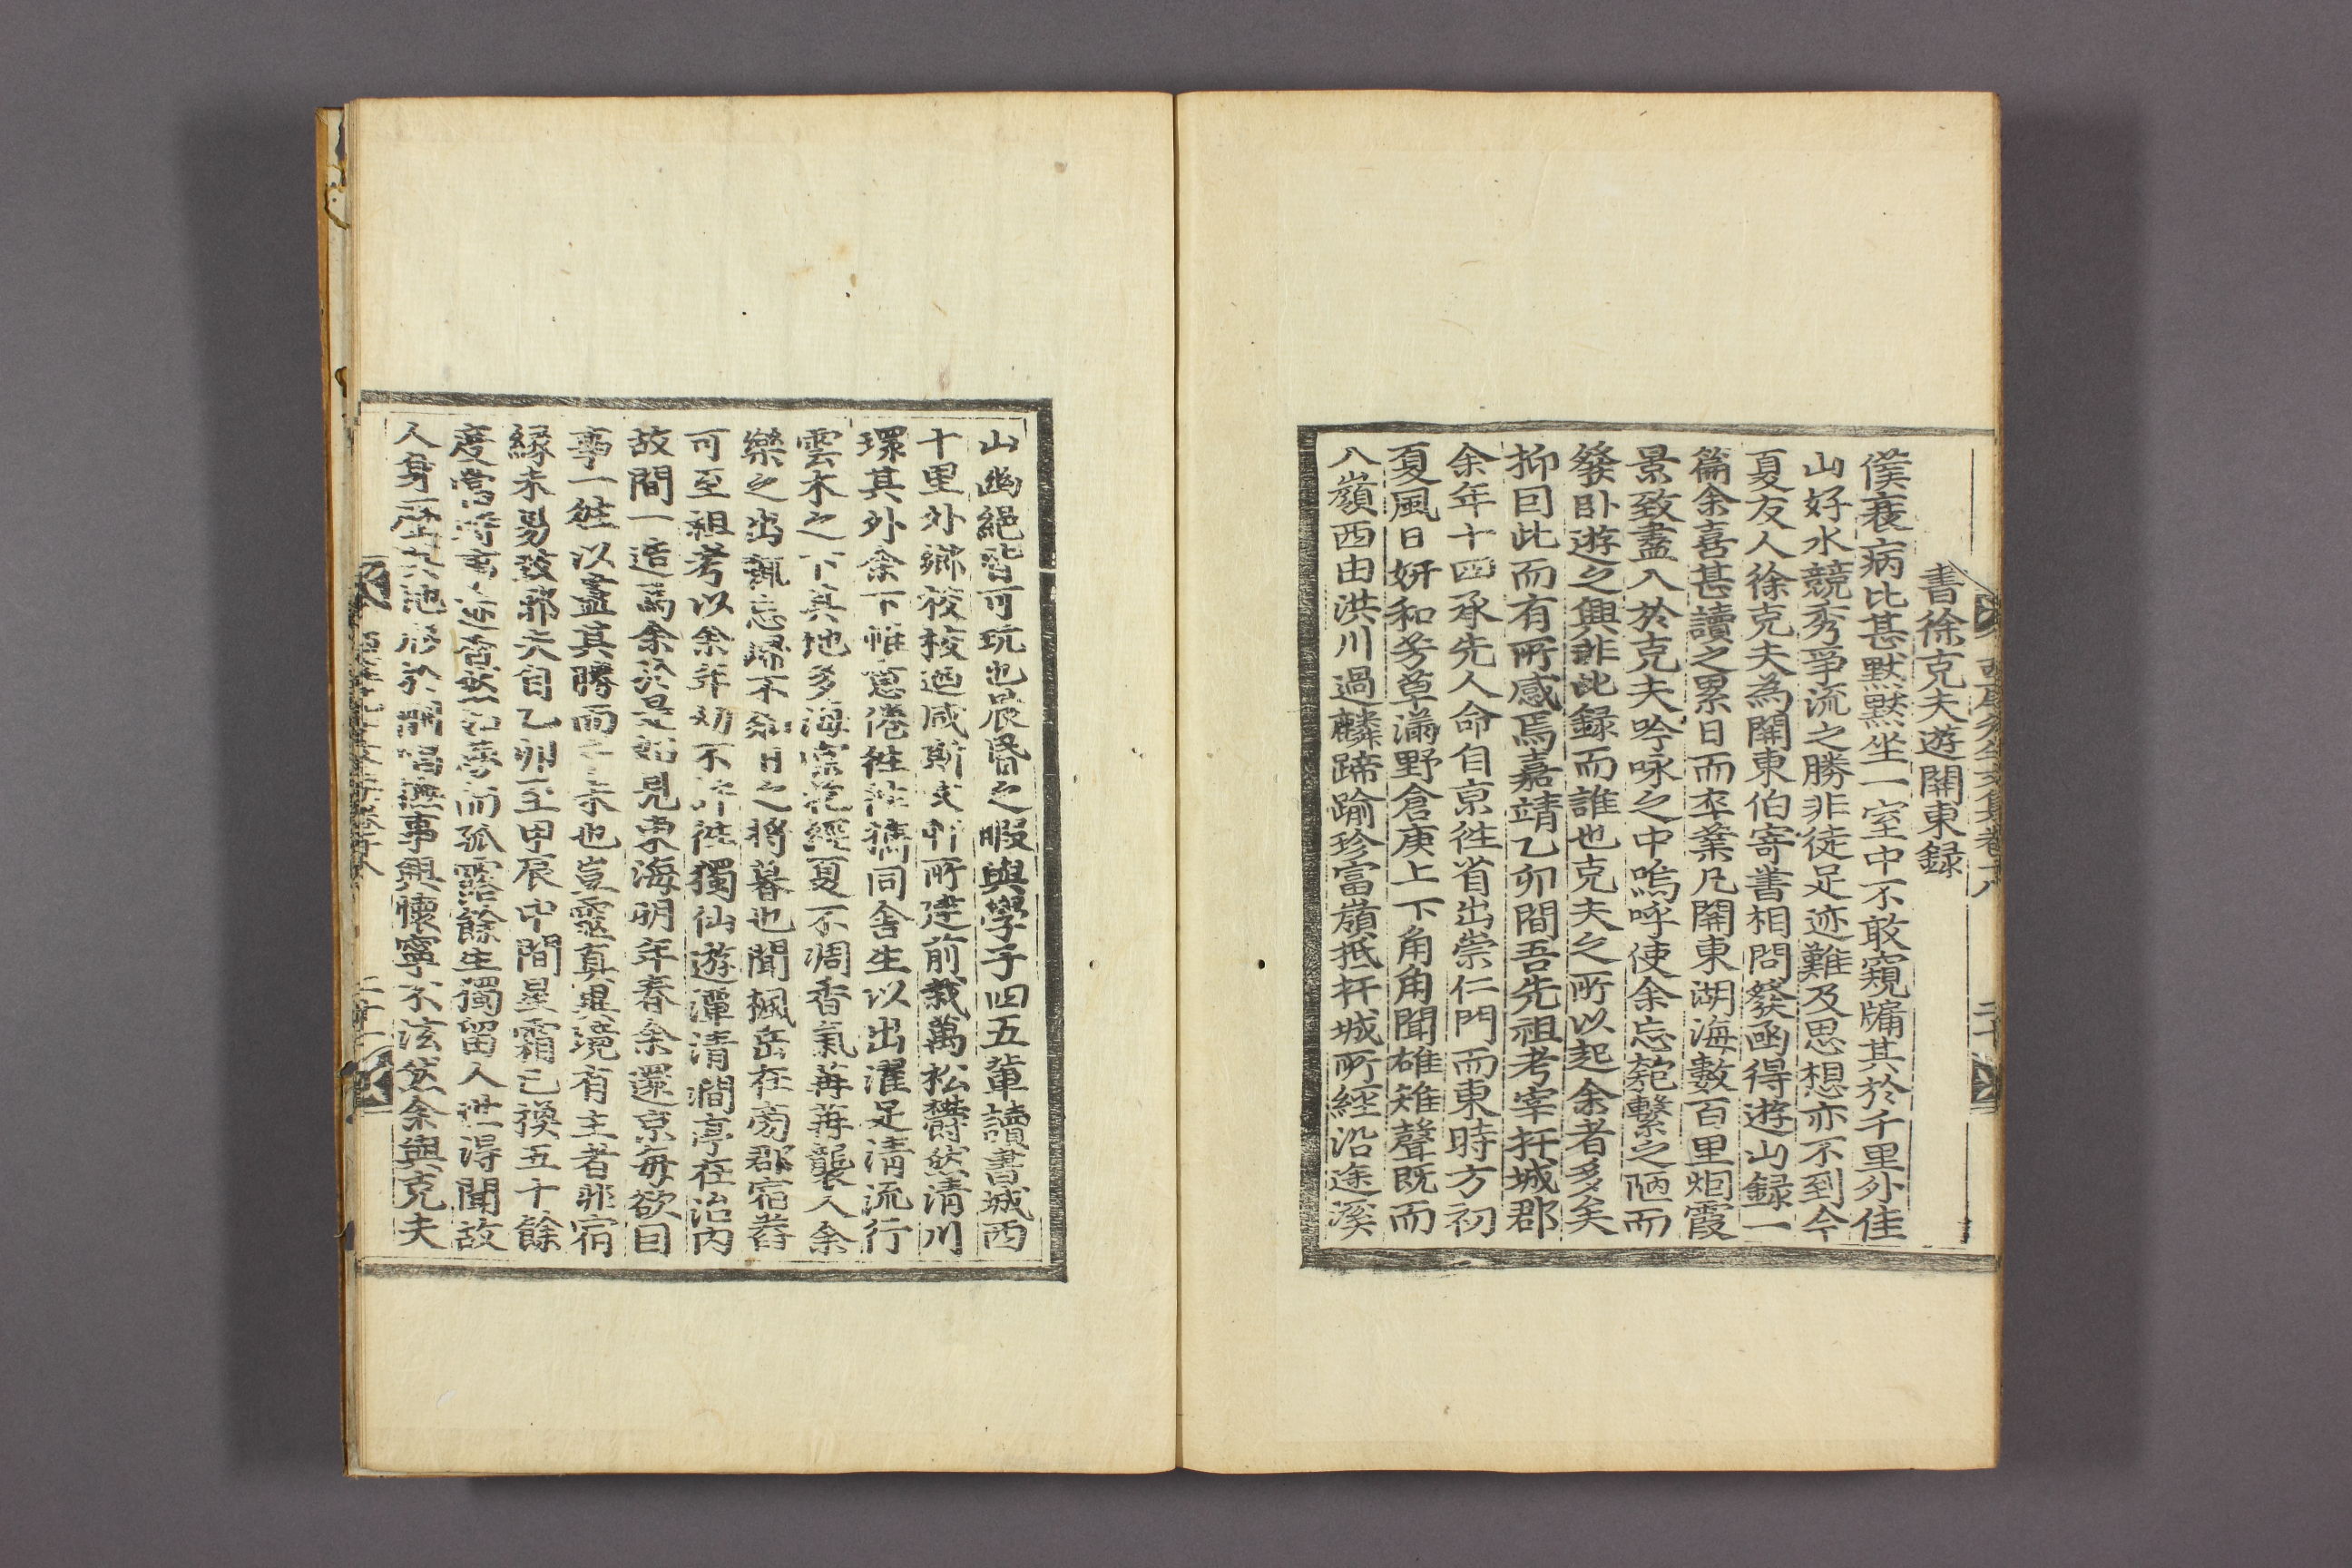 書徐克夫遊關東録
僕衰病比甚默默坐一室中不敢窺牖其於千里外佳
山好水競秀爭流之勝非徒足迹難及思想亦不到今
夏友人徐克夫為關東伯寄書相問發函得遊山録一
篇余喜甚讀之累日而卒業凡關東湖海數百里烟霞
景致盡入於克夫吟咏之中嗚呼使余忘匏繫之陋而
發臥遊之興非此録而誰也克夫之所以起余者多矣
抑因此而有所感焉嘉靖乙卯間吾先祖考宰扞城郡
余年十四承先人命自京徃省出崇仁門而東時方初
夏風日妍和芳草滿野倉庚上下角角聞雄雉聲既而
入嶺西由洪川過麟蹄踰珍富嶺抵扞城所經沿途溪
山幽絕皆可玩也晨昏之暇與學子四五輩讀書城西
十里外鄉校校廼咸斯文所建前栽萬松欝然清川
環其外余下帷意倦徃徃携同舍生以出濯足清流行
雲木之下其地多海棠花經夏不凋香氣苒苒襲人余
樂之出輒忘歸不知日之將暮也聞楓岳在旁郡宿舂
可至祖考以余年幼不許徃獨仙遊潭清澗亭在治內
故間一造焉余於是始見東海明年春余還京每欲因
事一徃以盡其勝而之未也豈靈真異境有主者非宿
緣未易致邪夫自乙卯至甲辰中間星霜已換五十餘
度當時事迹杳然如夢而孤露餘生獨留人世得聞故
人身歷其地形於嘯唱撫事興懷寧不泫然余與克夫